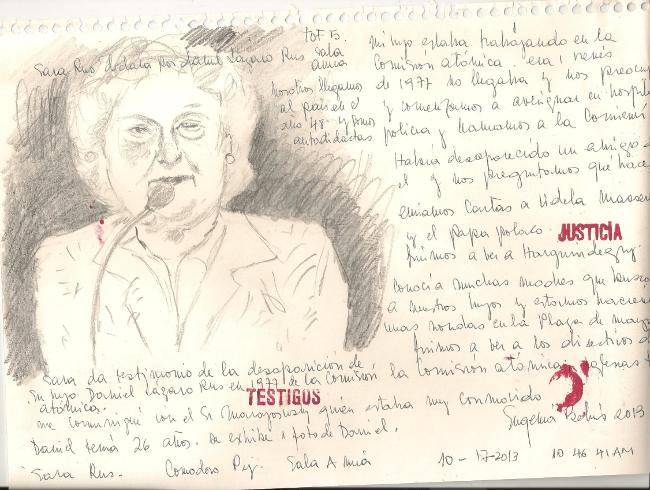 Sara Rus declara por Daniel Lázaro Rus
TOF 5.
Sala
AMIA
Nosotros llegamos
al país en el
año 48 y fuimos
autodidactas
mi hijo estaba trabajando en la
Comisión atómica. era viernes
de 1977 no llegaba y nos preocu
y comenzamos a averiguar en hospit
policia y llamamos a la Comisión
Había desaparecido un amigo d
el y nos preguntamos qué hace
enviamos cartas a Videla Massera
y el papa polaco.
JUSTICIA
fuimos a ver a Harguindeguy.
conocía muchas madres que busca
a nuestros hijos y estamos hacien
unas rondas en la Plaza de mayo
fuimos a ver a los directivos d
la comisión atómica apenas
Sara da testimonio de la desaparición de
su hijo Daniel Lázaro Rus en 1977 de la Comisión
atómica.
TESTIGOS
me comuniqué con el Sr quién estaba muy conmovido
Daniel tenía 26 años. Se exhibe 1 foto de Daniel.
Eugenia Bekeris 2013
Sara Rus. Comodoro Py. Sala AMIA 10-17-2013 10 46 41 AM